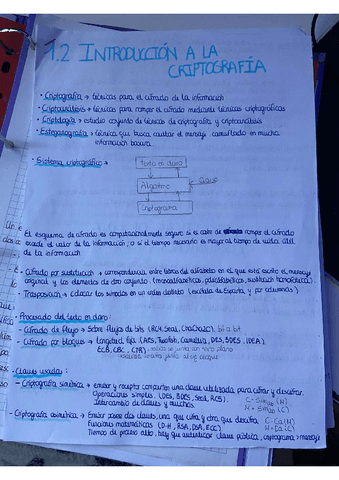 1.2 INTRODUCCIÓN A LA
CRIPTOGRAFÍA
• Criptografía → técnicas para el cifrado de la información
• Criptoanálisis → técnicas para romper el cifrado mediante técnicas criptográficas
• Criptología → estudio conjunto de técnicas de criptografía y criptoanálisis
• Esteganografía → técnica que busca ocultar el mensaje camuflado en mucha
información basura
• Sistema criptográfico →
Texto en claro
Algoritmo
Clave
Criptograma
El esquema de cifrado es computacionalmente seguro si es coste de romper el cifrado
excede el valor de la información; o si el tiempo necesario es mayor al tiempo de vida útil
de la información
• Cifrado por sustitución → correspondencia entre letras del alfabeto en el que está escrito el mensaje
original y los elementos de otro conjunto (monoalfabética, polialfabética, sustitución homofónica)
• Transposición → colocar los símbolos en un orden distinto (escítala de Esparta, y por columnas)
• Procesado del texto en claro:
- Cifrado de flujo → Sobre flujos de bits (RC4, Seal, ChaCha20) bit a bit
- Cifrado por bloques → Longitud fija (AES, Twofish, Camellia, DES, 3DES, IDEA)
ECB, CBC, CFB)
• Claves usadas:
- Criptografía simétrica → emisor y receptor comparten una clave utilizada para cifrar y descifrar.
Operaciones simples. (DES, 3DES, Seal, RC5).
Intercambio de claves y muchas.
- Criptografía asimétrica → Emisor posee dos claves, una que cifra y otra que descifra
Funciones matemáticas (D-H, RSA, DSA, ECC)
Tiempo de proceso alto, hay que autenticar clave pública, criptograma > mensaje